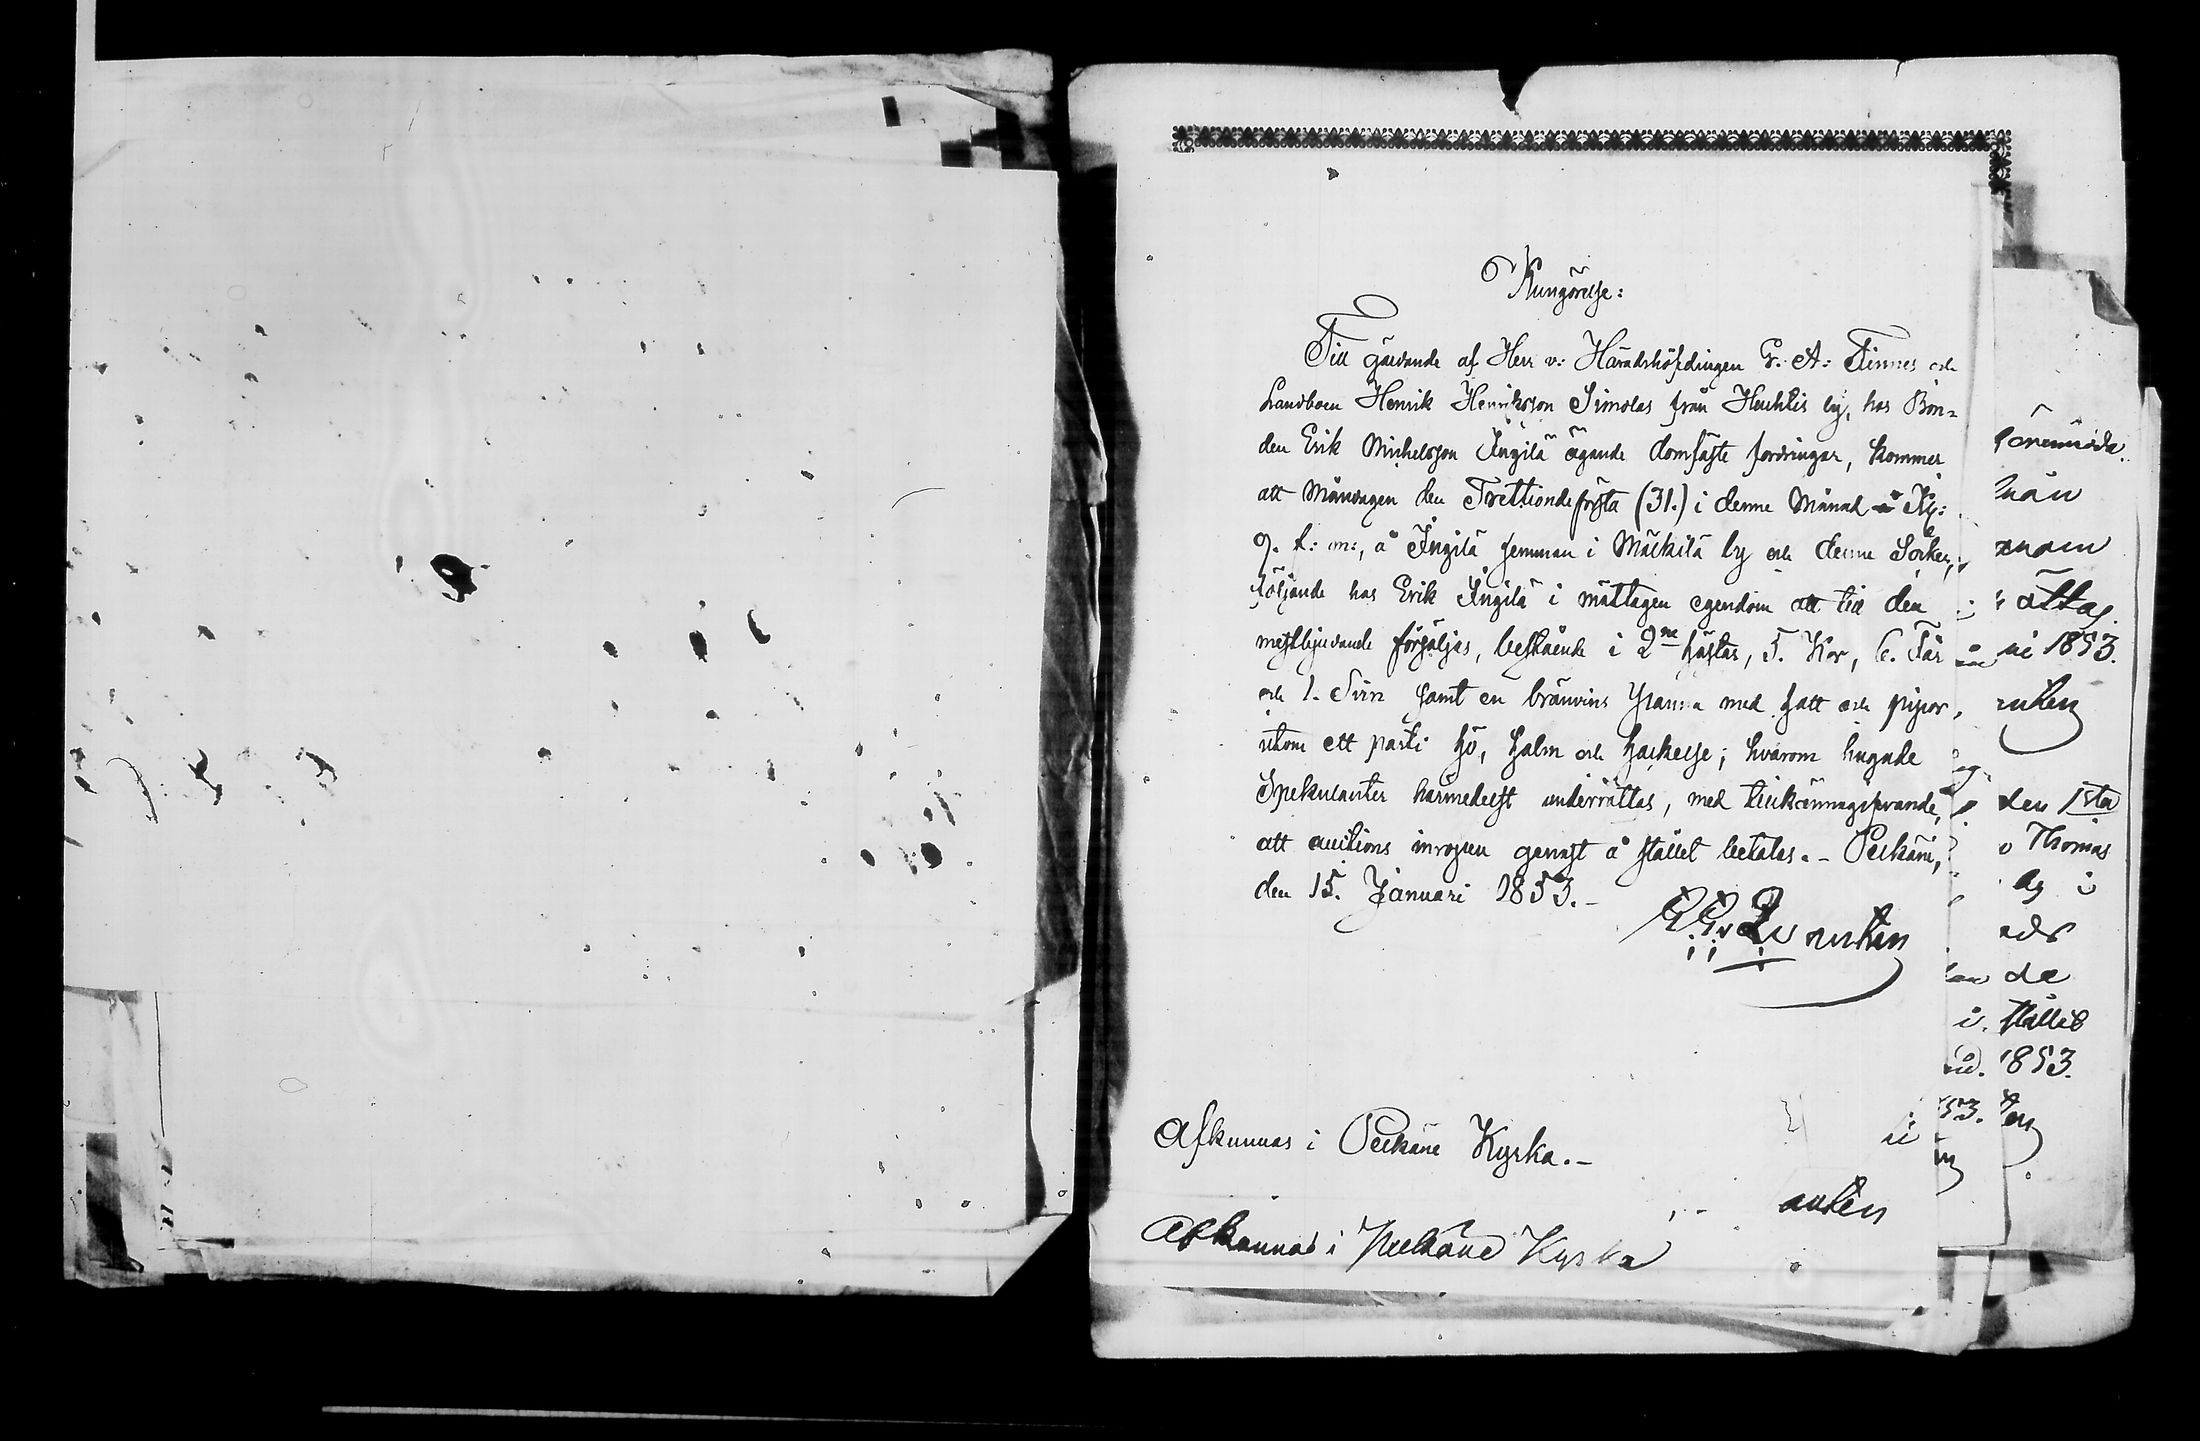 Kungörelse:
Till gäldande af Herr v: Häradshöfdingen G: A: Finnes och
Landboen Henrik Henriksson Simolas från Huhtis by, hos Bon=
den Erik Michelsson Ingilä ägande domfäste fordringar, kommer
att Måndagen den Trettiondeförsta (31.) i denne Månad Kl:
9. f: m:, å Ingilä hemman i Mälkilä by och denne Socken,
följande hos Erik Ingilä i mättagen egendom att till den
mestbjudande försäljas, bestående i 2ne hästar, 5. Kor, 6. Får
och 1. Svin samt en brännvins panna med hatt och pipor,
utom ett parti hö, halm och hackelse; hvarom hugade
Spekulanter härmedelst underrättas, med tillkännagifvande,
att auctions inropen genast å stället betalas. - Pelkäne,
den 15. Januari 1853. -
Afkunnas i Pelkäne Kyrka. -
Afkunnas i Pelkäne Kyrka
nåu
xnam
åttas
ni 1853.
nten
den 1sta
Thomas
by i
de
i. stället
1853.
53.
anten